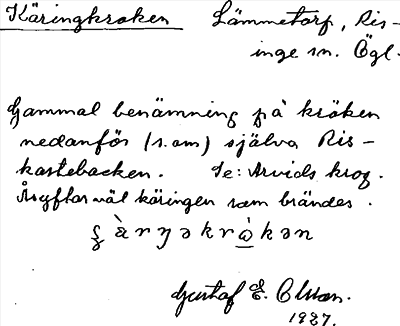 Käringkroken Lämmetorp, Ris-
inge sn. Ögl.
Gammal benämning på kröken
nedanför (s.om) själva Ris-
kastebacken. Se: Arvids krog.
Åsyftar väl käringen som brändes.
Gustaf E. Olsson.
1927.